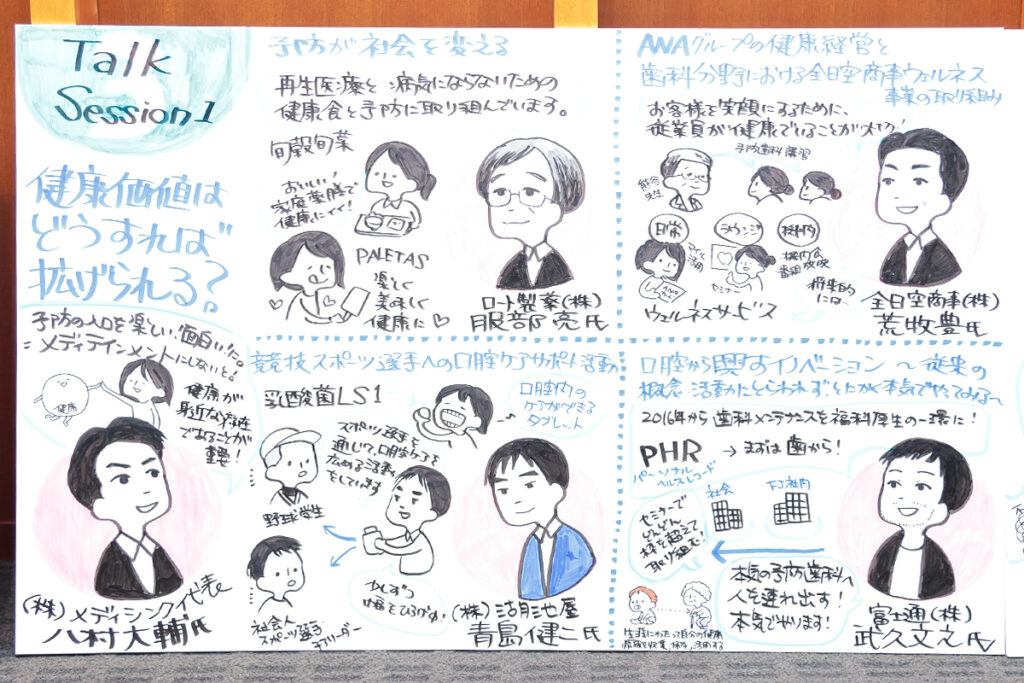 Talk
Session 1
健康価値は
どうすれば
拡げられる?
予防の入口を楽しい!面白い!に。
=メディテインメントにしないと!
健康
健康が
身近な存在
であることが
重要!
(株)メディシンク代表
八村大輔氏
予防が社会を変える
再生医療と病気にならないための
健康食と予防に取り組んでいます。
旬穀旬菜
おいしい!
家庭薬膳で
健康にイイ!
PALETAS
楽しく
美味しく
健康に♡
ロート製薬(株)
服部亮氏
ANAグループの健康経営と
歯科分野における全日空商事ウェルネス
事業の取り組み
お客様を笑顔にするために、
従業員が健康でいることが大切!
予防歯科講習
熊谷
先生
日常
ラウンジ
機内
セミナー
機内食
番組放映
将来的
には…
ウェルネスサービス
全日空商事(株)
荒牧豊氏
競技スポーツ選手への口腔ケアサポート活動
乳酸菌LS1
口腔内の
ケアができる
タブレット
スポーツ選手を
通じて、口腔ケアを
広める活動
をしています
野球学生
社会人
スポーツ選手
少しずつ
(株)湖池屋
青島健二氏
口腔から興すイノベーション~従来の
概念・活動にとらわれず、とにかく本気でやってみる~
2016年から歯科メンテナンスを福利厚生の一環に!
PHR → まずは歯から!
パーソナル
ヘルスレコード
社会
FJ社内
セミナーで
どんどん
枠を超えて
取り組む!
本気の予防歯科へ
人を連れ出す!
本気でやります!
生涯にわたって自分の健康
富士通(株)
武久文之氏